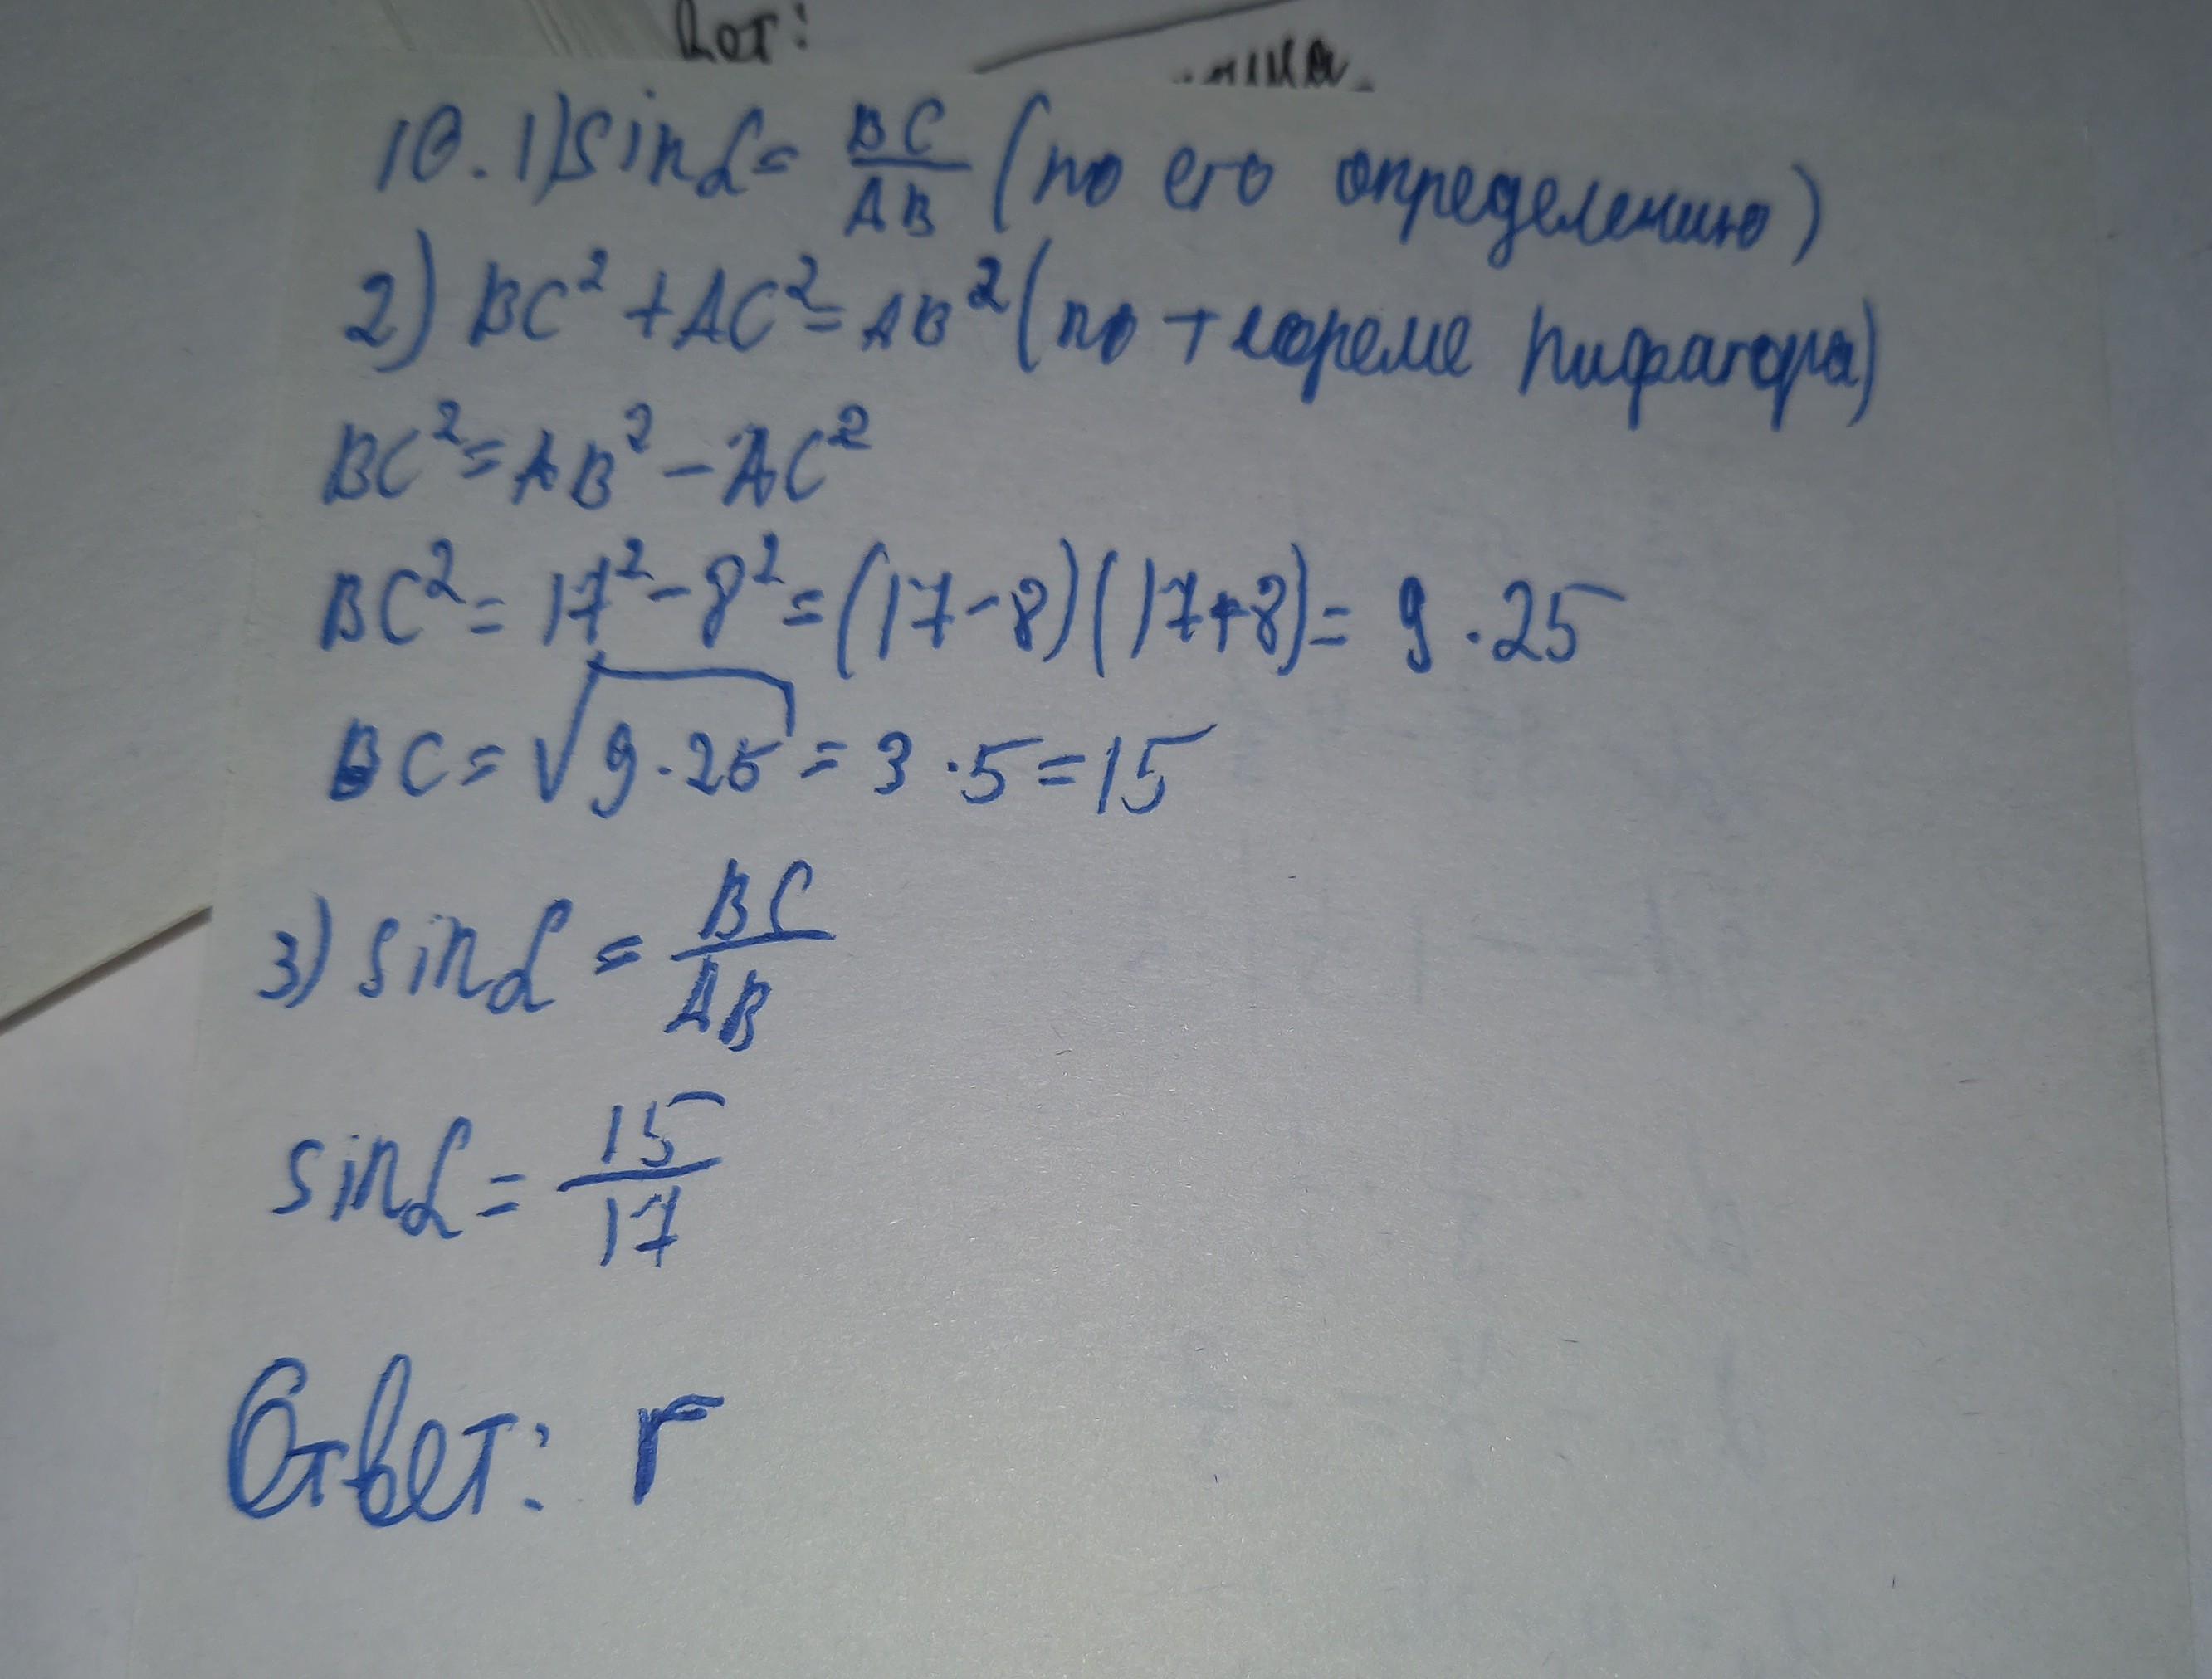 10. 1) sin α = BC/AB (по его определению)
2) BC² + AC² = AB² (по теореме Пифагора)
BC² = AB² - AC²
BC² = 17² - 8² = (17-8)(17+8) = 9 · 25
BC = √9·25 = 3 · 5 = 15
3) sin α = BC/AB
sin α = 15/17
Ответ: Г